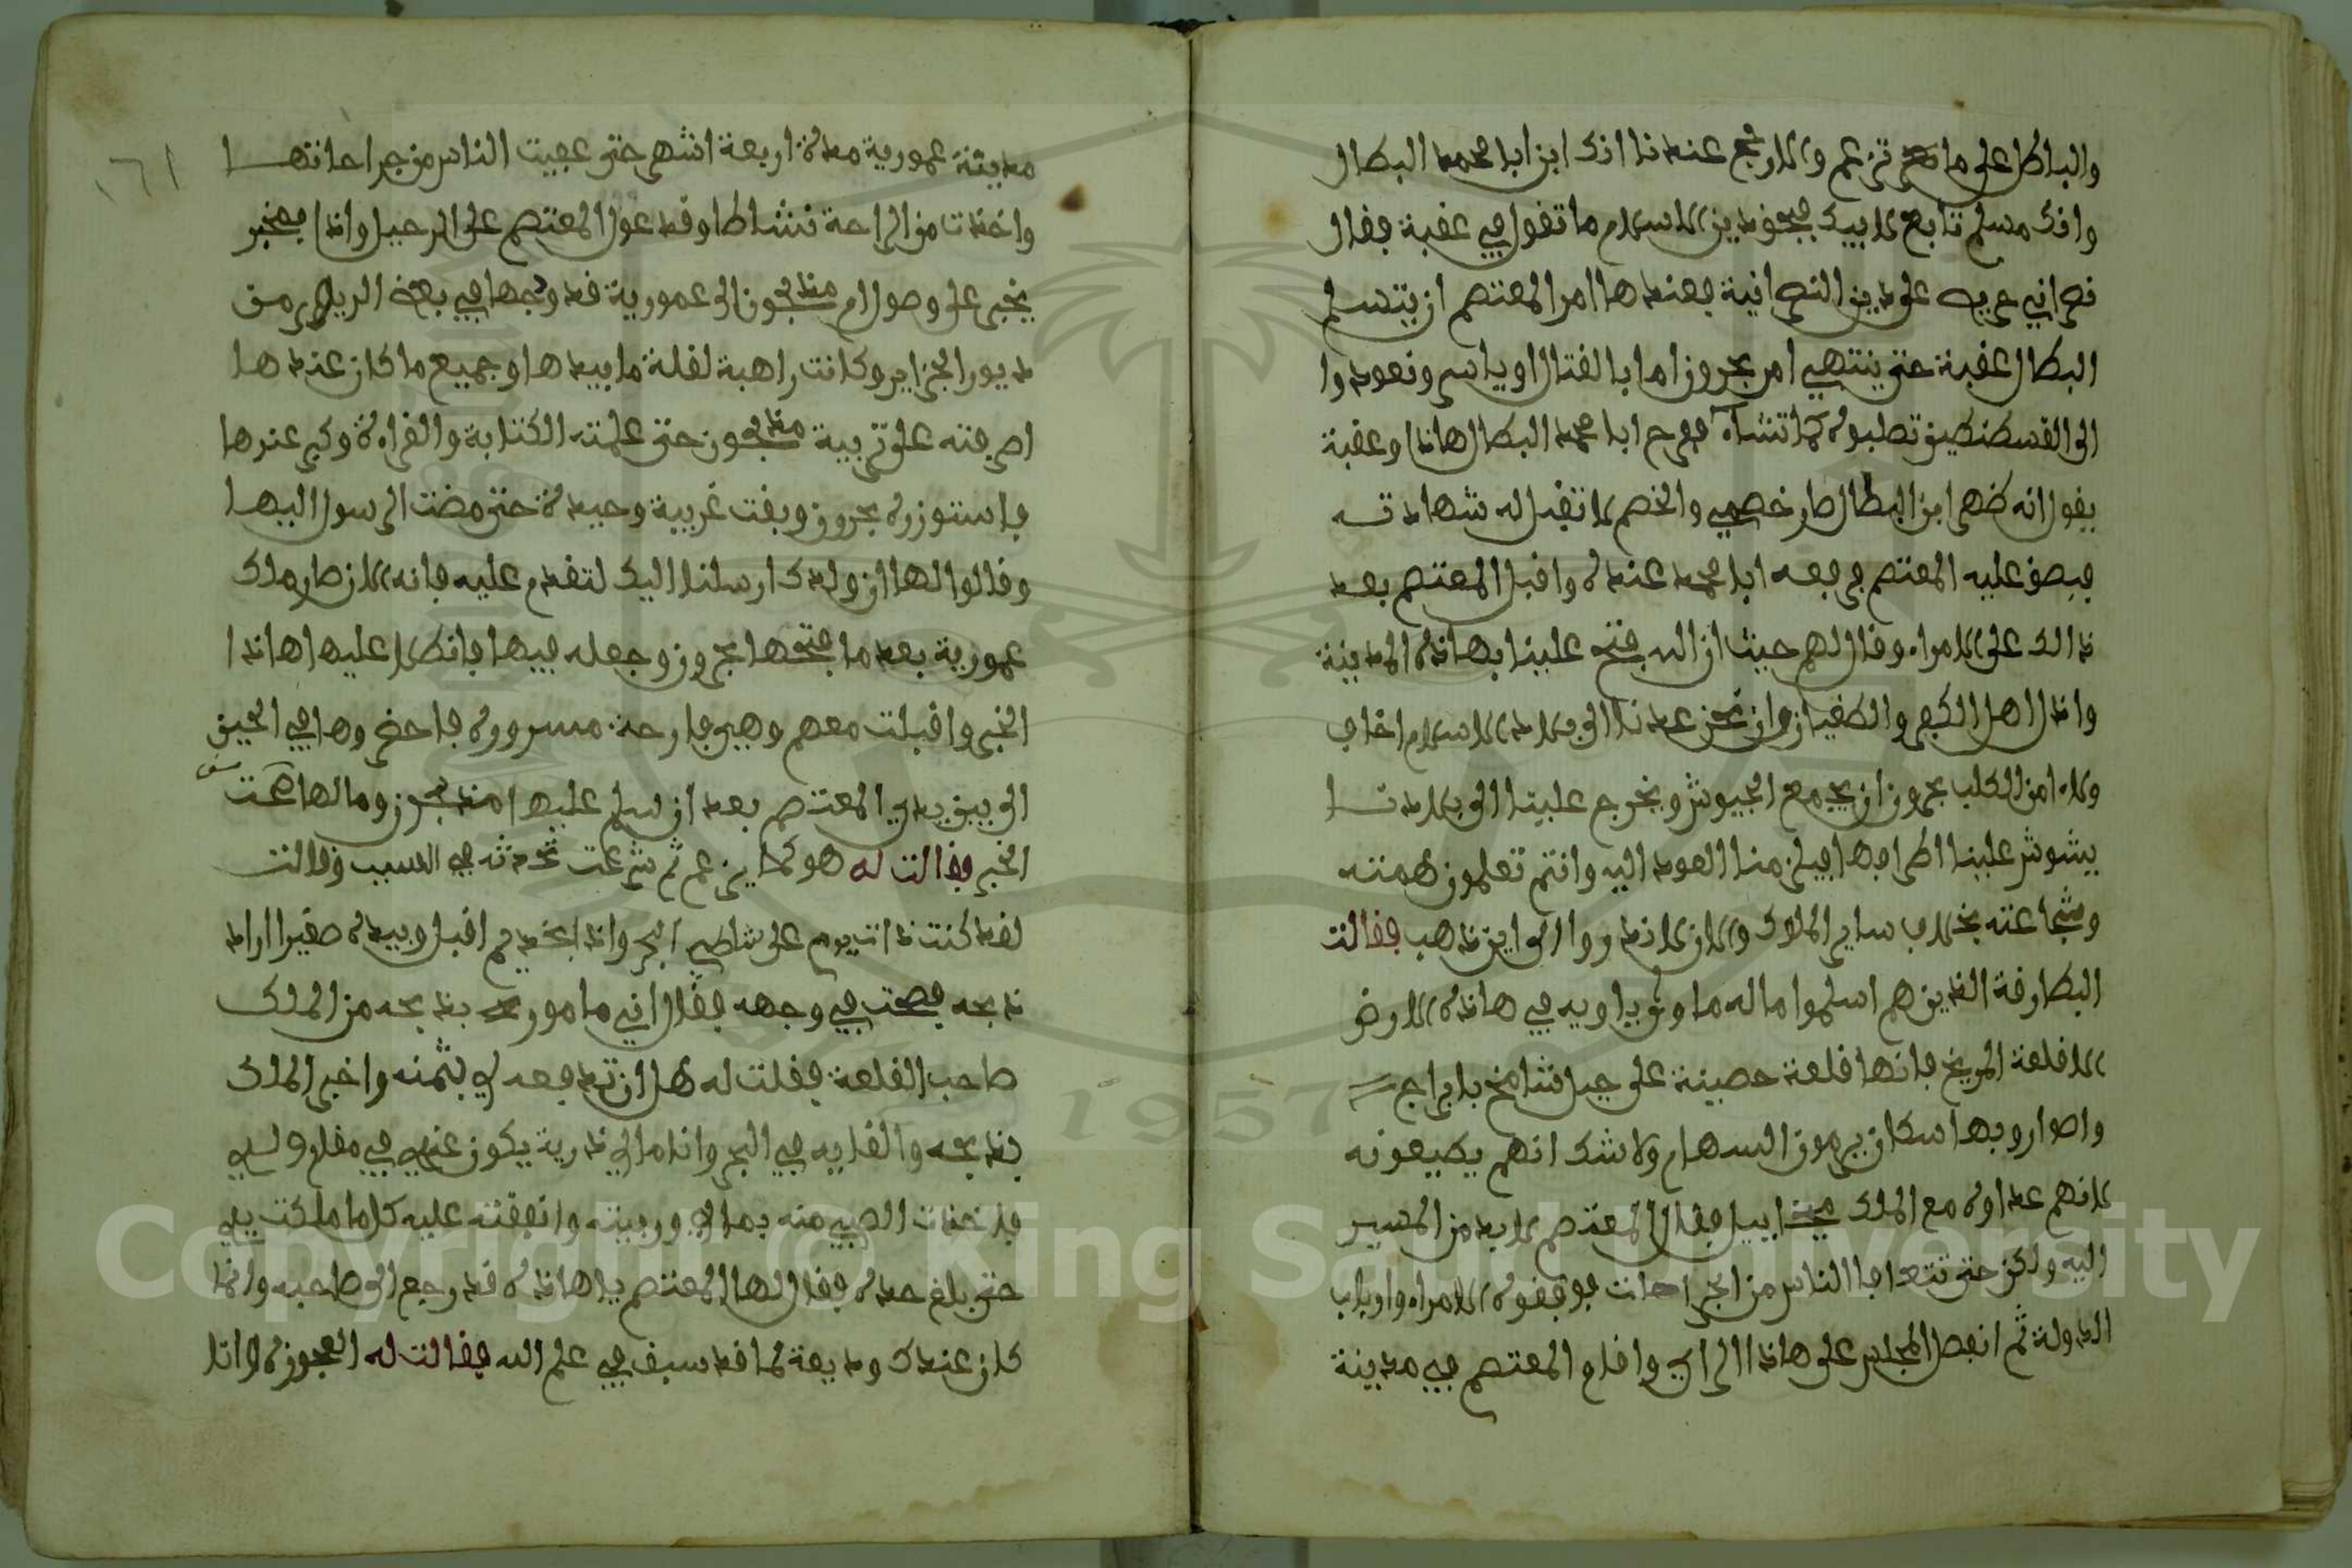 والباطل على ما تزعم والارجح عندنا انك ابن ابا محمد البطال
وانك مسلم تابع لابيك فبحق دين الاسلام ما تقول في عقبة فقال
نصراني على دين النصرانية فعندها امر المعتصم ان يتسلم
البطال عقبة حتى ينتهي امر بحرون اما بالقتال او ياسر ونعودوا
الى القسطنطين تصلبوه كما تشاء ففرح ابا محمد البطال هاذا وعقبة
يقول انه ظهر ابن البطال صار خصمي والخصم لا تقبل له شهادته
فبصق عليه المعتصم فرفعه ابا محمد عنده واقبل المعتصم بعد
ذالك على الامراء وقال لهم حيث ان الله فتح علينا بهاذه المدينة
واذل اهل الكفر والطغيان وان نحن عدنا الى بلاد الاسلام اخاف
ولاء امن الكلب بحرون ان يجمع الجيوش ويخرج علينا الى بلادنا
يشوش علينا اطرافها فيلزمنا العود اليه وانتم تعلمون همته
وشجاعته بخلاف ساير الملوك والان لا ندروا الى اين ذهب فقالت
البطارقة الذين هم اسلموا ما له ماوى ياويه في هاذه الارض
الا قلعة المريخ فانها قلعة حصينة على جبل شامخ بابراج
واصوار وبها سكان يرمون السهام ولا شك انهم يطيعونه
لانهم عداوه مع الملك ميخاييل فقال المعتصم لابد من المسير
اليه ولكن حتى تتعافا الناس من الجراحات فوفقوه الامراء وارباب
الدولة ثم انفصل المجلس على هاذا الراي واقام المعتصم في مدينة
١٦١
مدينة عمورية مدة اربعة اشهر حتى عفيت الناس من جراحاتها
واخذت من الراحة نشاطا وقد عول المعتصم على الرحيل واذا بمخبر
يخبر على وصول ام منذبحون الى عمورية قد وجدها في بعض الديار من
ديور الجزاير وكانت راهبة لقلة ما بيدها وجميع ما كان عندها
اصرفته على تربية منذبحون حتى علمته الكتابة والقراءة وكبر عندها
فاستوزره بحرون وبقت غريبة وحيدة حتى مضت الرسول اليها
وقالوا لها ان ولدك ارسلنا اليك لتقدم عليه فانه الان صار ملك
عمورية بعد ما فتحها بحرون وجعله فيها فانطلا عليها هاذا
الخبر واقبلت معهم وهي فارحة مسرووره فاحضروها في الحين
الى بين يدي المعتصم بعد ان سلم عليها منذبحون وسالها عن صحت
الخبر فقالت له هو كما يزعم ثم شرعت تحدثه في السبب وقالت
لقد كنت ذات يوم على شاطي البحر واذا بخديم اقبل وبيده صغيرا اراد
ذبحه فصحت في وجهه فقال اني مامور بذبحه من الملك
صاحب القلعة فقلت له هل ان تدفعه لي بثمنه واخبر الملك
بذبحه والقايه في البحر وانا مالي ذرية يكون عندي في مقام ولدي
فاخذت الصبي منه بمالي وربيته وانفقته عليه كلما ملكت يدي
حتى بلغ حده فقال لها المعتصم يا هاذه قد رجع الى صاحبه وانما
كان عندك وديعة لما قد سبق في علم الله فقالت له العجوزه وانا